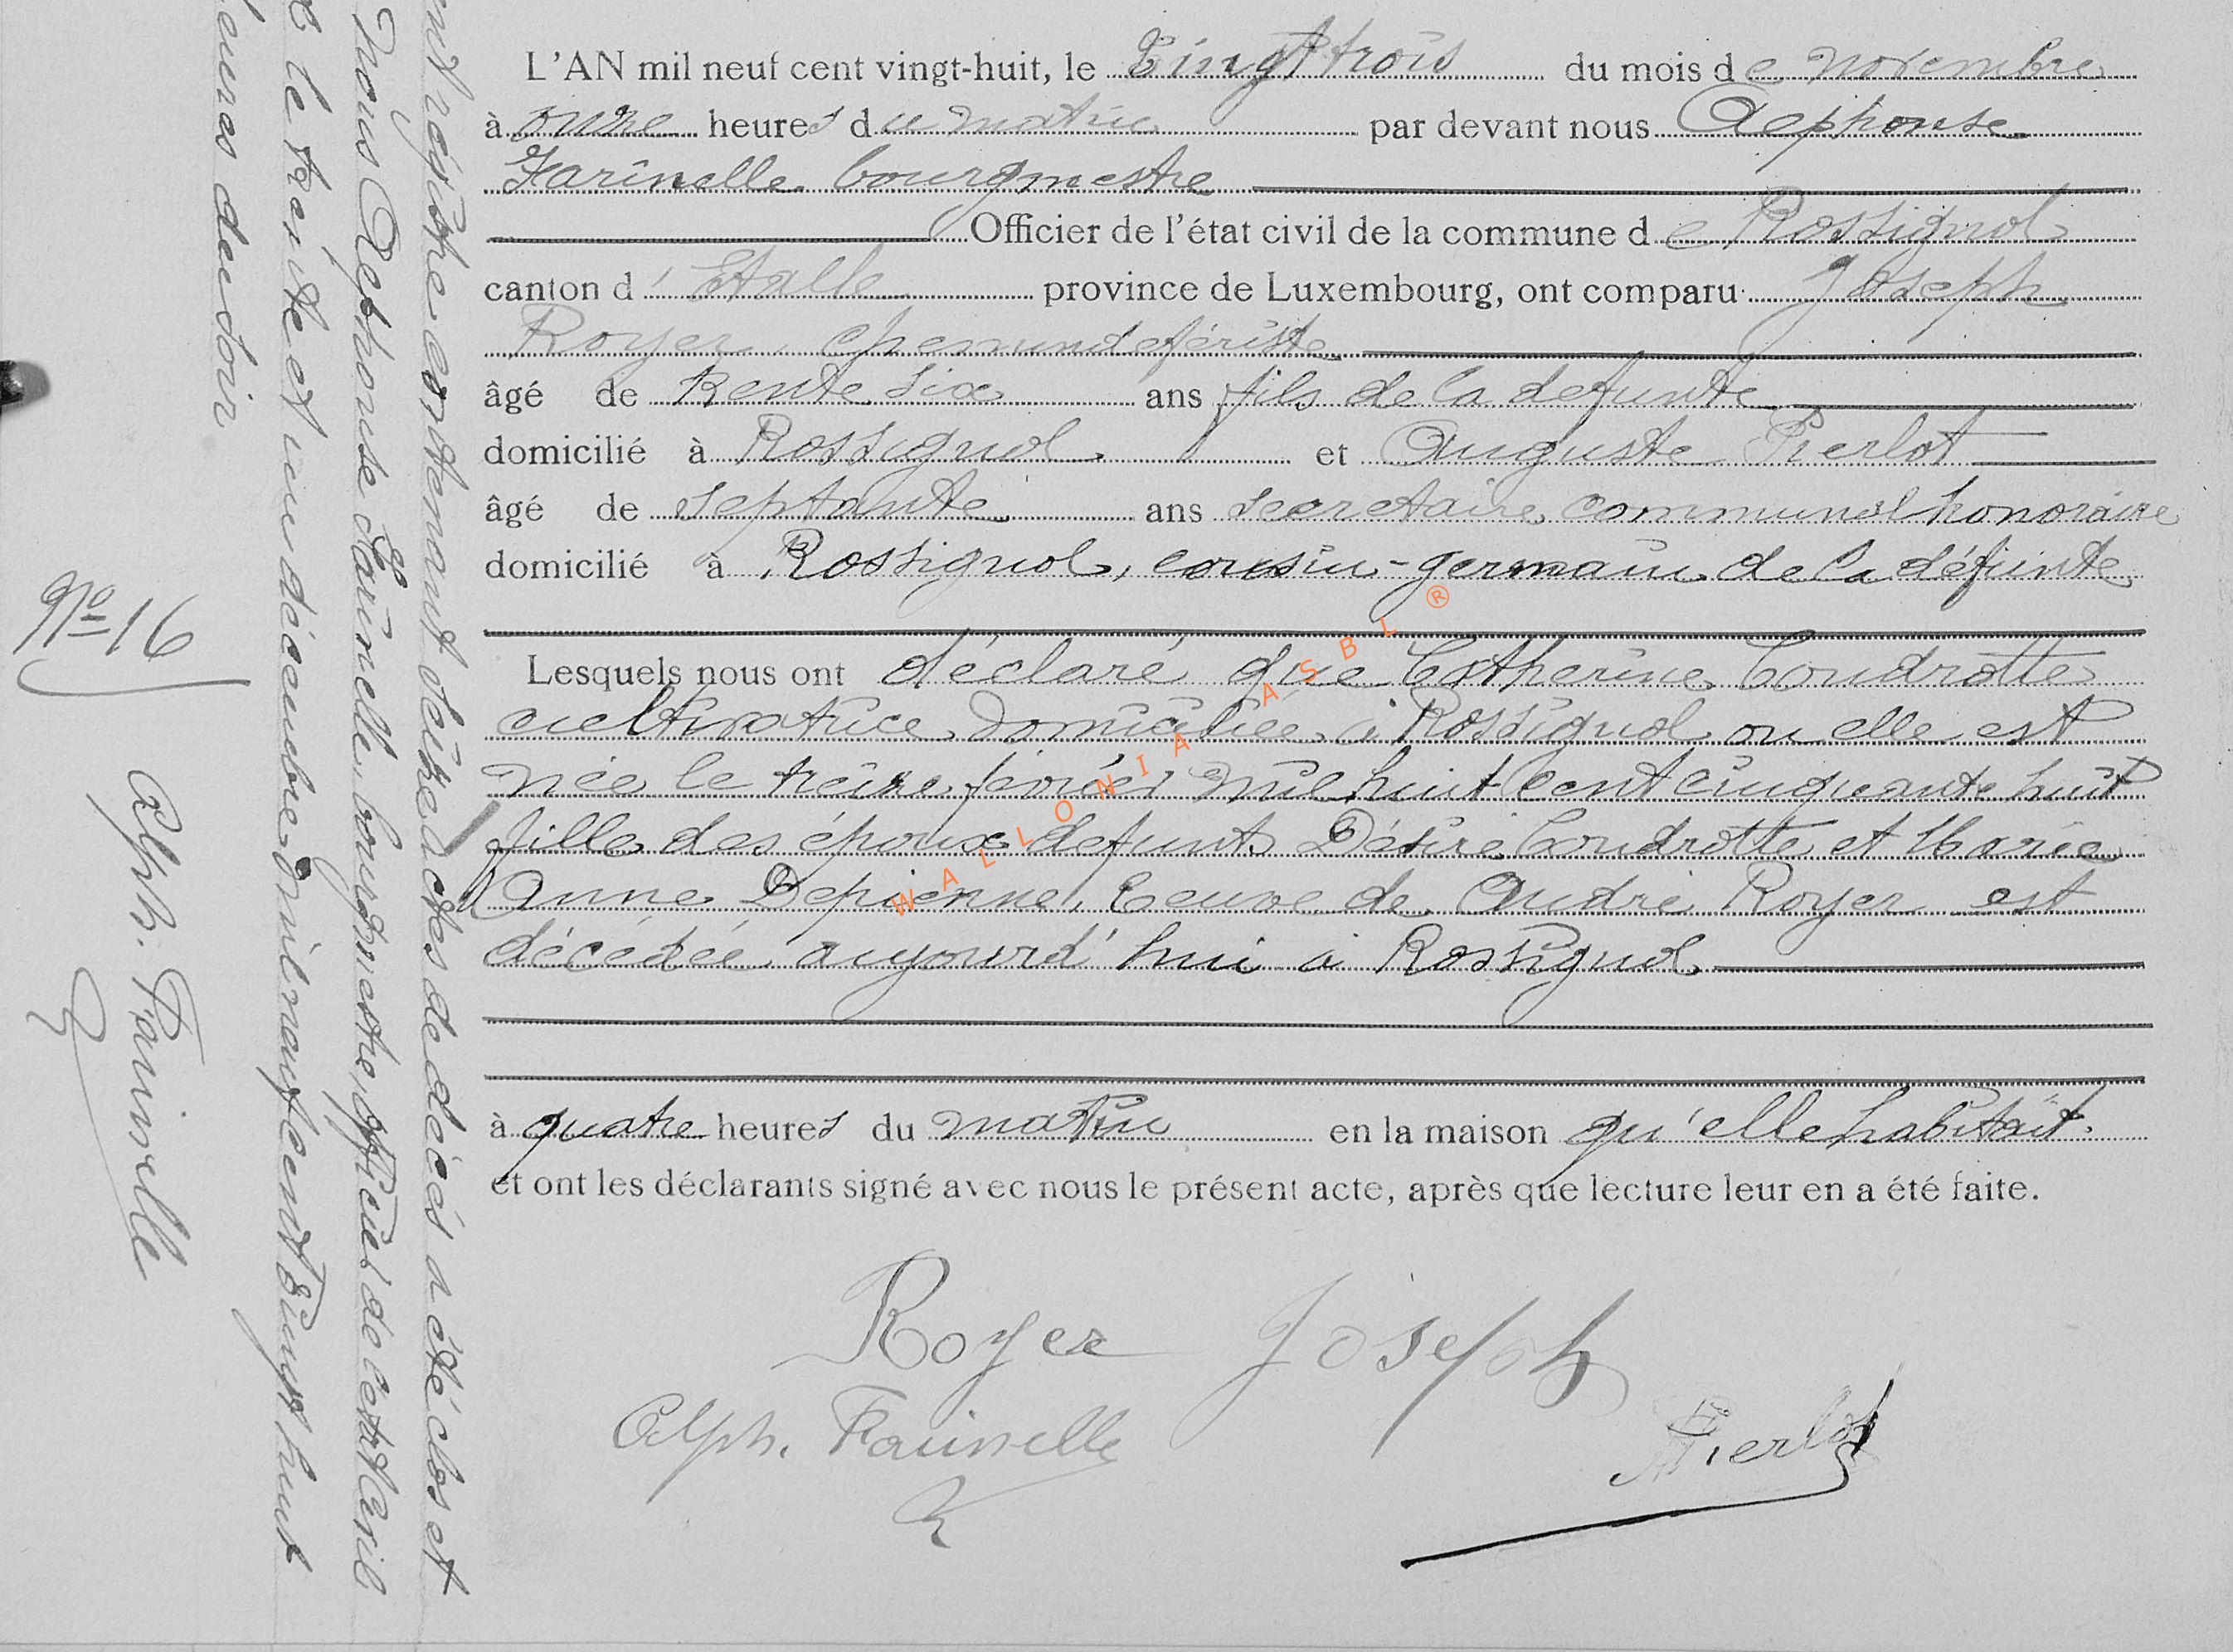 L'AN mil neuf cent vingt-huit, le Vingt trois du mois de novembre
à onze heures du matin par devant nous Alphonse
Farinelle bourgmestre
Officier de l'état civil de la commune de Rossignol
canton d'Etalle province de Luxembourg, ont comparu Joseph
Royer, chemindefériste
âgé de trente six ans fils de la defunte
domicilié à Rossignol et Auguste Pierlot
âgé de septante ans secretaire communal honoraire
domicilié à Rossignol, cousin-germain de la défunte
Lesquels nous ont déclaré que Catherine Coudrotte
cultivatrice domiciliée à Rossignol ou elle est
née le treize février mil huit cent cinquante huit
fille des époux defunts Désiré Coudrotte et Marie
Anne Depienne, Veuve de André Royer est
décédée aujourd'hui à Rossignol
à quatre heures du matin en la maison qu'elle habitait.
et ont les déclarants signé avec nous le présent acte, après que lecture leur en a été faite.
Royer Joseph
Alph. Farinelle
Pierlot
No 16
registre contenant seize actes de décès a été clos et
nous Alphonse Farinelle, bourgmestre, officier de l'etat Civil
le trente et un décembre mil neuf cent Vingt huit
heures du soir
Alph. Farinelle
WALLONIA ASBL ®